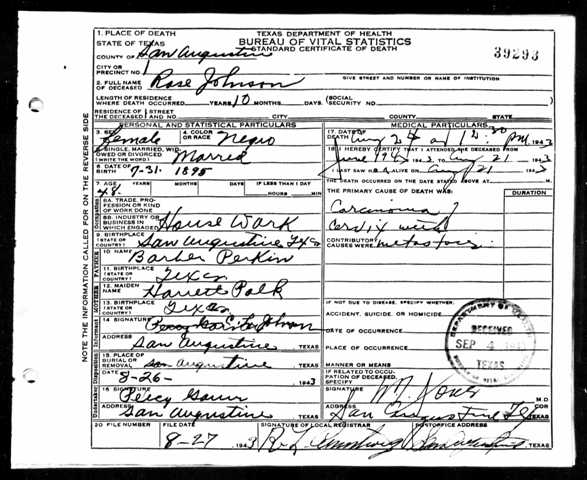 TEXAS DEPARTMENT OF HEALTH
BUREAU OF VITAL STATISTICS
STANDARD CERTIFICATE OF DEATH
39293
1. PLACE OF DEATH
STATE OF TEXAS
COUNTY OF San Augustine
CITY OR
PRECINCT NO. 1
GIVE STREET AND NUMBER OR NAME OF INSTITUTION
2. FULL NAME
OF DECEASED Rose Johnson
LENGTH OF RESIDENCE
WHERE DEATH OCCURRED YEARS 10 MONTHS DAYS
(SOCIAL
(SECURITY NO.
RESIDENCE OF STREET
THE DECEASED AND NO. CITY COUNTY STATE
PERSONAL AND STATISTICAL PARTICULARS
3. SEX Female
4. COLOR OR RACE Negro
5. SINGLE, MARRIED, WIDOWED OR DIVORCED
(WRITE THE WORD) Married
6. DATE OF BIRTH 7-31-1895
7. AGE YEARS MONTHS DAYS IF LESS THAN 1 DAY
48 HOURS MIN
8A. TRADE, PROFESSION OR KIND OF WORK DONE
8B. INDUSTRY OR BUSINESS IN WHICH ENGAGED House Work
9. BIRTHPLACE
(STATE OR COUNTRY) San Augustine Tex
10. NAME Barber Perkin
11. BIRTHPLACE
(STATE OR COUNTRY) Texas
12. MAIDEN NAME Harrett Polk
13. BIRTHPLACE
(STATE OR COUNTRY) Texas
14. SIGNATURE Johnson
ADDRESS San Augustine TEXAS
15. PLACE OF BURIAL OR REMOVAL San Augustine TEXAS
DATE 8-26- 1943
16. SIGNATURE Percy
ADDRESS San Augustine TEXAS
MEDICAL PARTICULARS
17. DATE OF DEATH Aug 24 at 12:30 PM. 1943
18. I HEREBY CERTIFY THAT I ATTENDED THE DECEASED FROM
June 1943 Aug 21 1943
I LAST SAW ALIVE ON Aug 21 1943
THE DEATH OCCURRED ON THE DATE STATED ABOVE AT M.
THE PRIMARY CAUSE OF DEATH WAS: DURATION
Carcinoma of
Cervix with
CONTRIBUTORY CAUSES WERE
IF NOT DUE TO DISEASE, SPECIFY:
ACCIDENT, SUICIDE, OR HOMICIDE
DATE OF OCCURRENCE
PLACE OF OCCURRENCE
MANNER OR MEANS
IF RELATED TO OCCUPATION OF DECEASED, SPECIFY
SIGNATURE M.D.
ADDRESS San Augustine TEXAS
RECEIVED
SEP 4
TEXAS
20 FILE NUMBER FILE DATE SIGNATURE OF LOCAL REGISTRAR POSTOFFICE ADDRESS
8-27 1943 TEXAS
NOTE THE INFORMATION CALLED FOR ON THE REVERSE SIDE